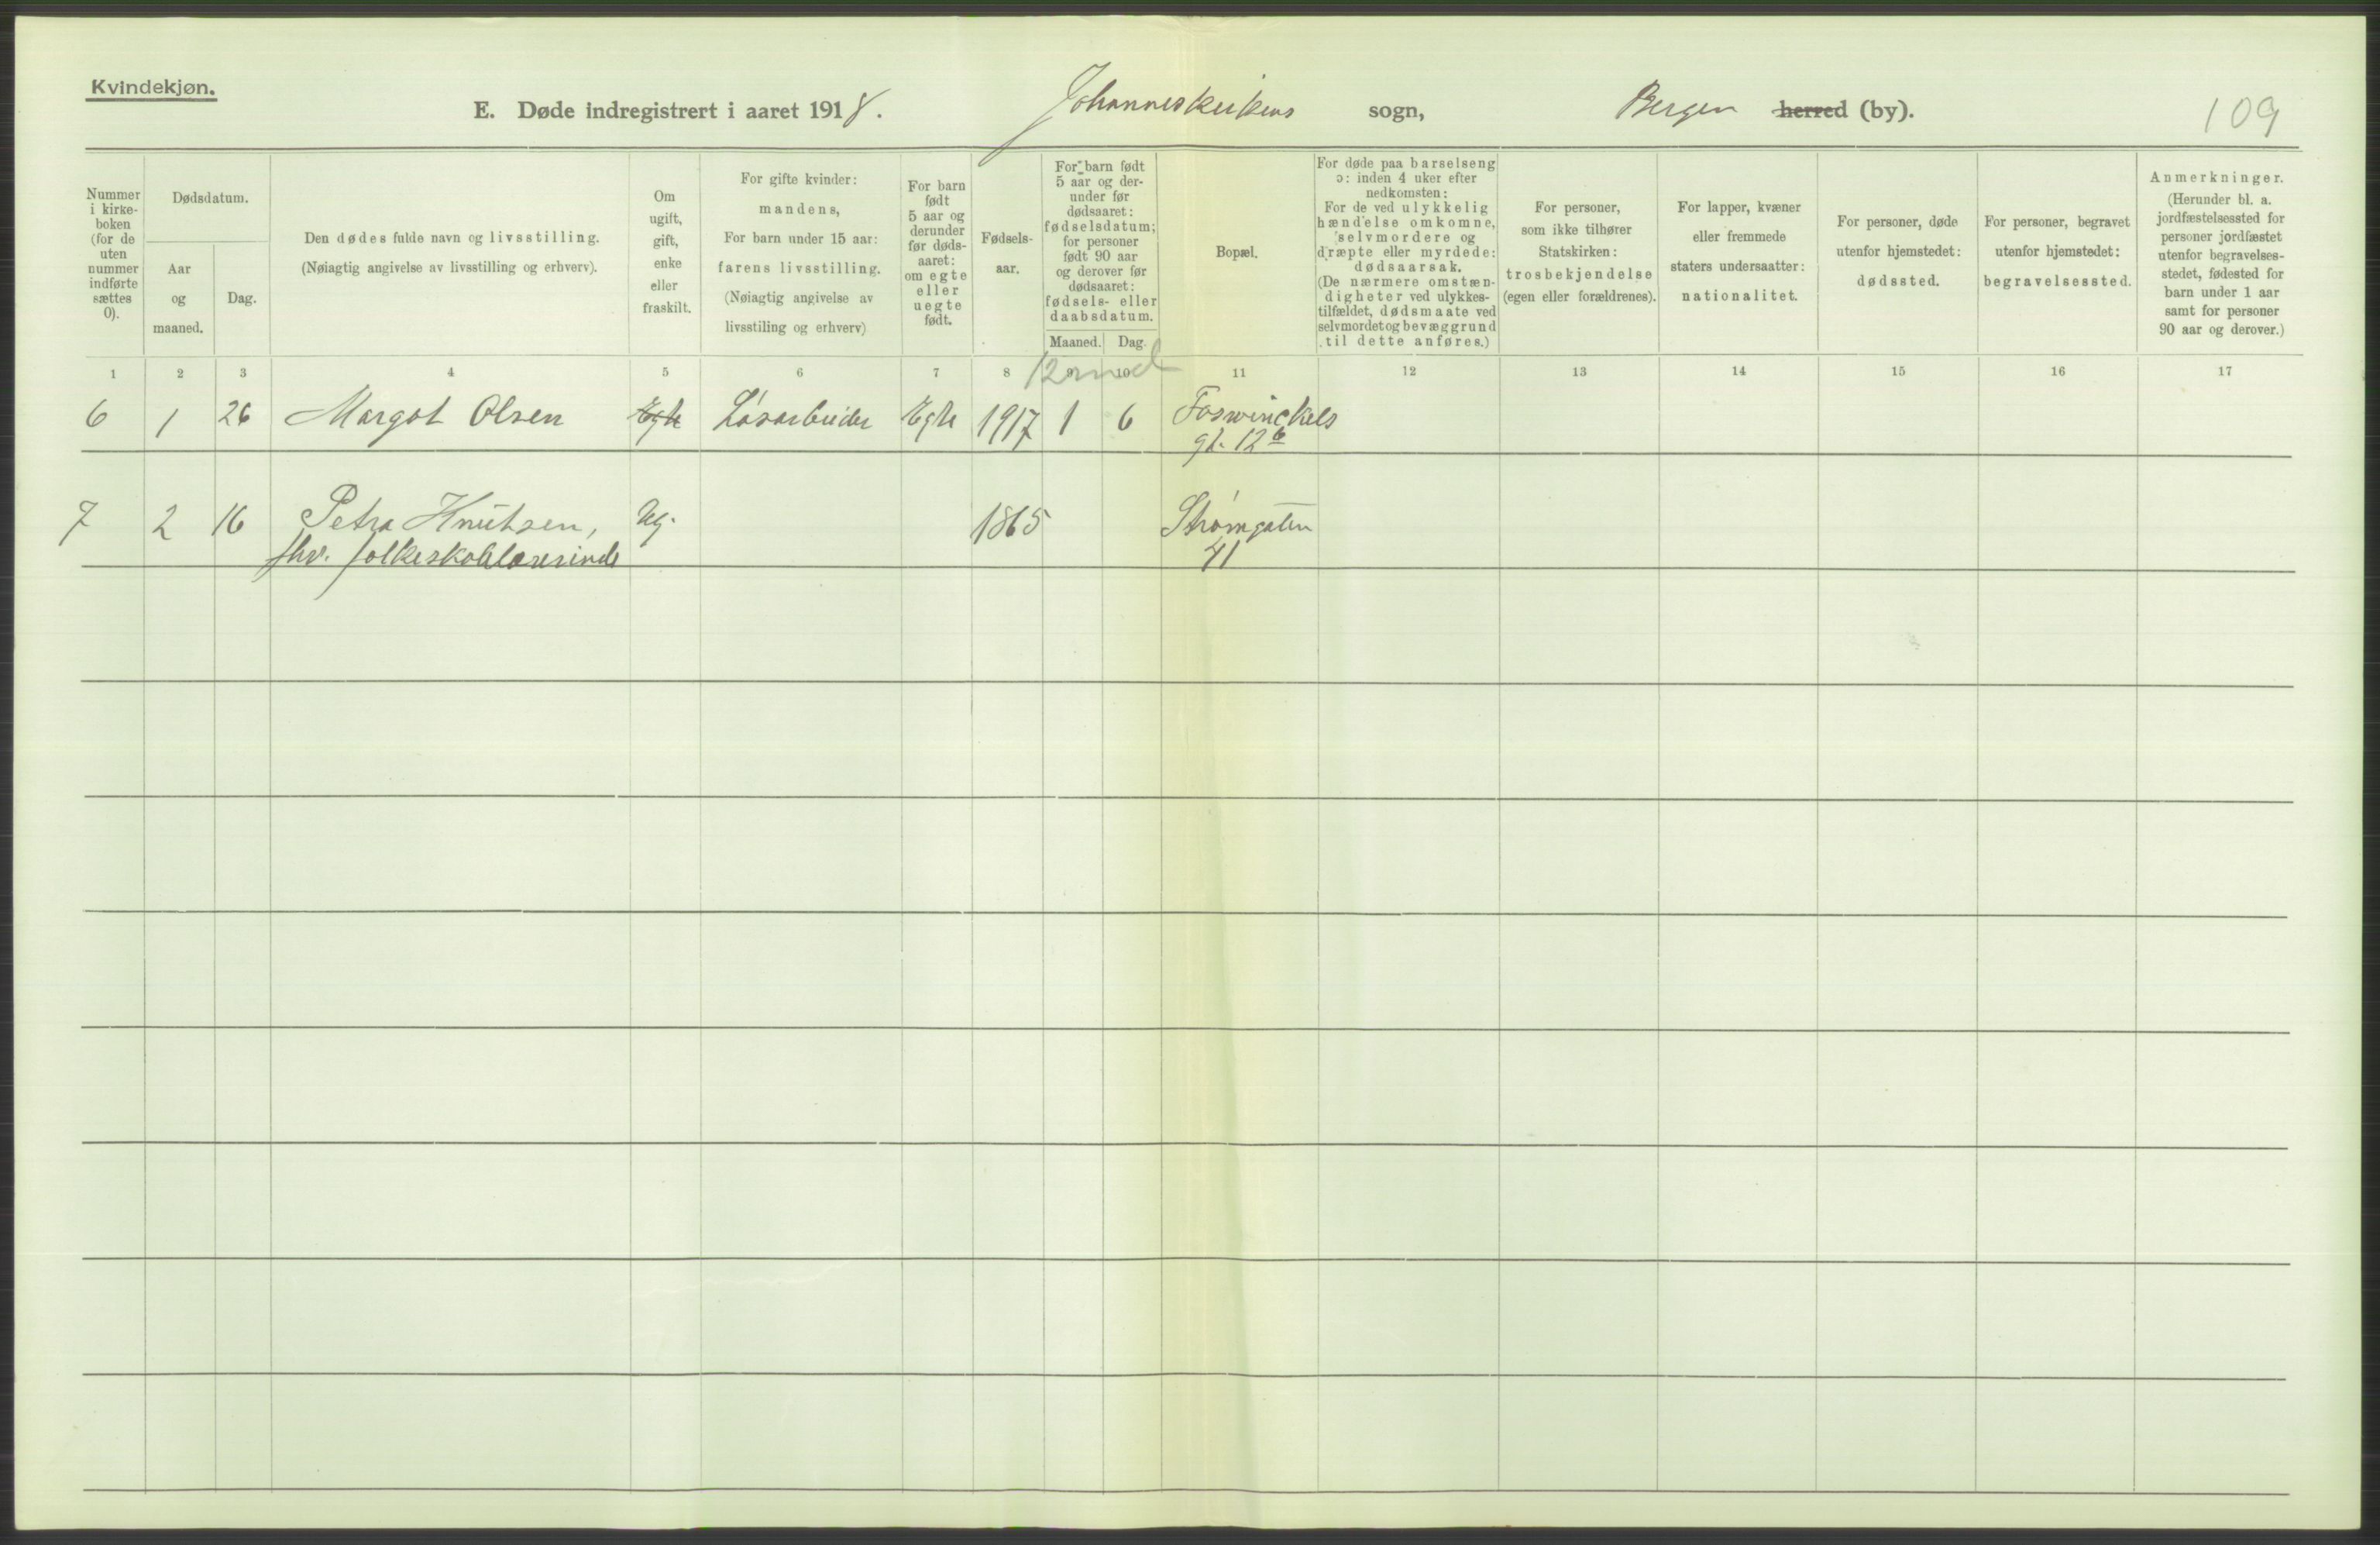 Kvindekjøn.
E. Døde indregistrert i aaret 1918. Johanneskirkens sogn, Bergen herred (by). 109
Nummer i kirkeboken (for de uten nummer indførte sættes 0).
Dødsdatum.
Aar og maaned.
Dag.
Den dødes fulde navn og livsstilling.
(Nøiagtig angivelse av livsstilling og erhverv).
Om ugift, gift, enke eller fraskilt.
For gifte kvinder:
mandens,
For barn under 15 aar:
farens livsstilling.
(Nøiagtig angivelse av
livsstiling og erhverv)
For barn født 5 aar og derunder før dødsaaret: om egte eller uegte født.
Fødselsaar.
For barn født 5 aar og derunder før dødsaaret: fødselsdatum; for personer født 90 aar og derover før dødsaaret: fødsels- eller daabsdatum.
Maaned. Dag.
Bopæl.
For døde paa barselseng
ɔ: inden 4 uker efter
nedkomsten:
For de ved ulykkelig
hændelse omkomne,
selvmordere og
dræpte eller myrdede:
dødsaarsak.
(De nærmere omstæn-
digheter ved ulykkes-
tilfældet, dødsmaate ved
selvmordet og bevæggrund
til dette anføres.)
For personer,
som ikke tilhører
Statskirken:
trosbekjendelse
(egen eller forældrenes).
For lapper, kvæner
eller fremmede
staters undersaatter:
nationalitet.
For personer, døde
utenfor hjemstedet:
dødssted.
For personer, begravet
utenfor hjemstedet:
begravelsessted.
Anmerkninger.
(Herunder bl. a.
jordfæstelsessted for
personer jordfæstet
utenfor begravelses-
stedet, fødested for
barn under 1 aar
samt for personer
90 aar og derover.)
1 2 3 4 5 6 7 8 9 10 11 12 13 14 15 16 17
6 1 26 Margot Olsen Egte Løsarbeider Egte 1917 1 6 Foswinckels
gt. 12 b
7 2 16 Petra Knutsen, Ug. 1865 Strømgaten
fhv. folkeskolelærerinde 41